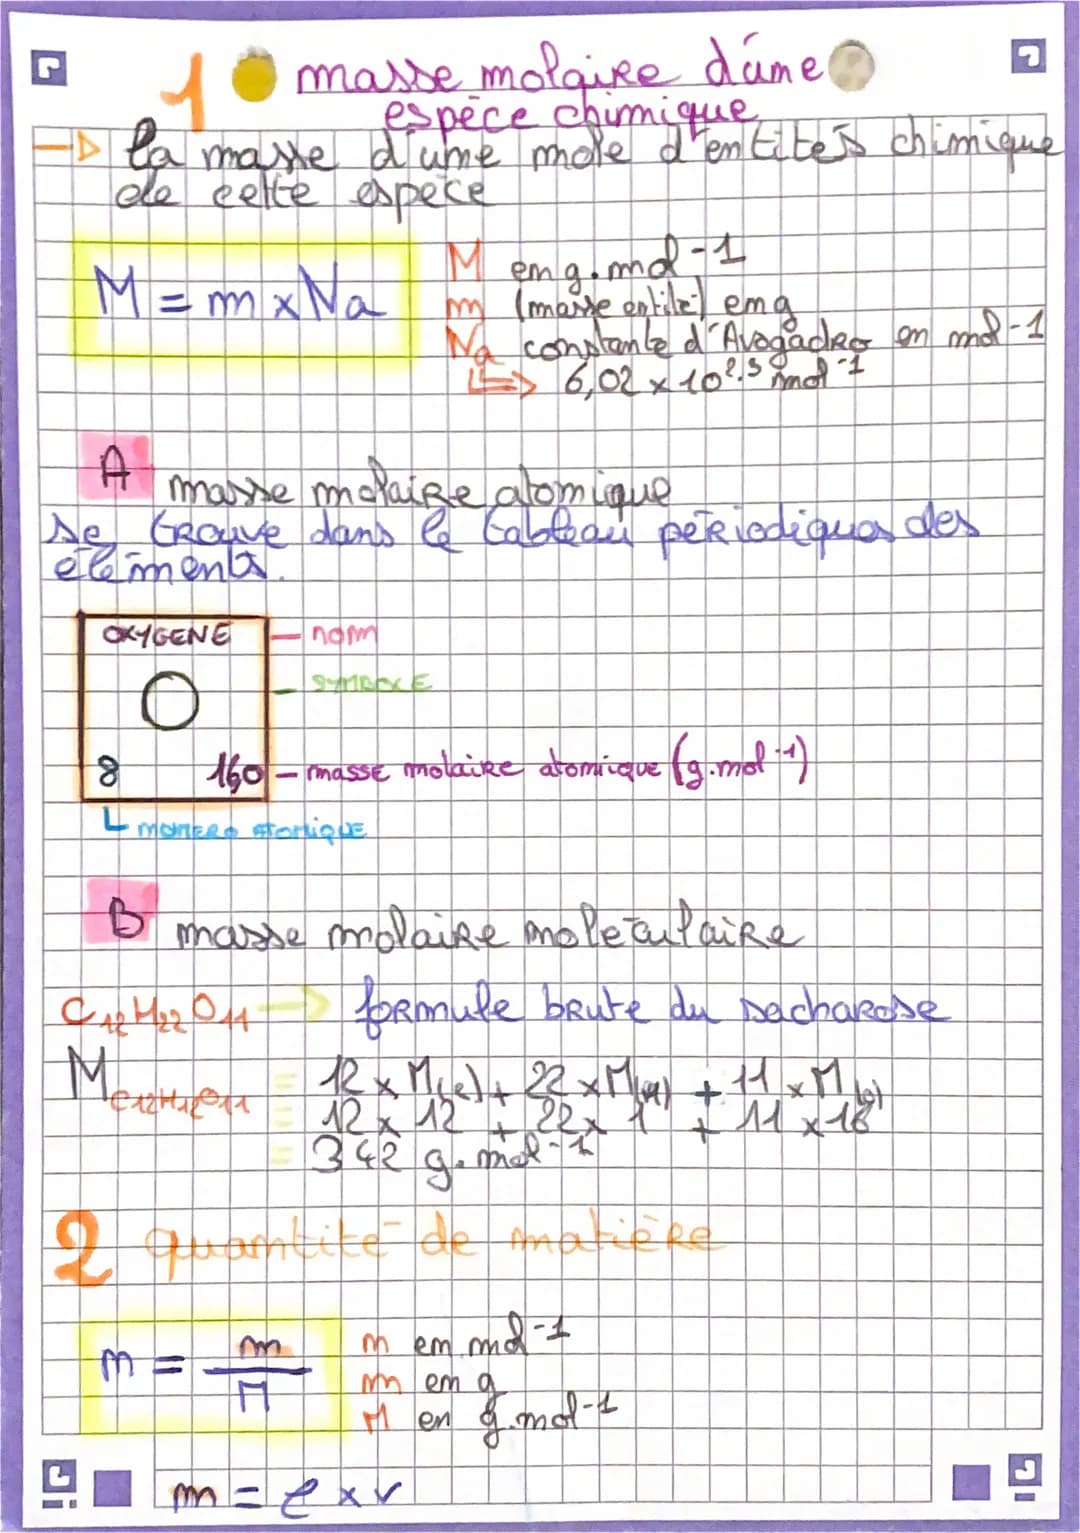 1 masse molaire d'une
espèce chimique
→ la masse d'une mole d'entités chimique
de cette espèce
M = m x Na
M en g.mol-1
m (masse entité) en g
Na constante d'Avogadro en mol-1
↳ 6,02 x 10²³ mol-1
A masse molaire atomique
se trouve dans le tableau périodiques des
éléments.
OXYGENE - nom
O - SYMBOLE
8 160 - masse molaire atomique (g.mol-1)
numero atomique
B masse molaire moléculaire
C12H22O11 → formule brute du sacharose
M C12H12O11 = 12 x M(c) + 22 x M(H) + 11 x M(o)
= 12 x 12 + 22 x 1 + 11 x 16
= 342 g.mol-1
2 quantité de matière
n = m / M
n en mol-1
m en g
M en g.mol-1
m = e x v